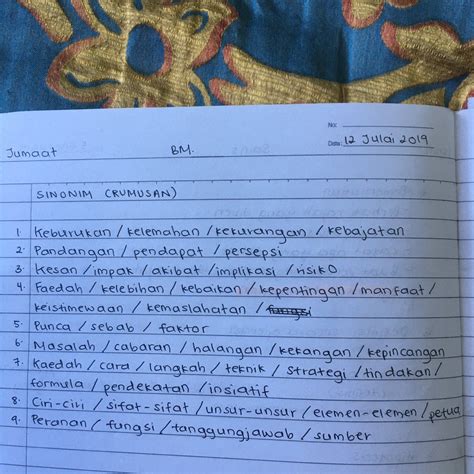 No:
Jumaat BM. Date: 12 Julai 2019
SINONIM (RUMUSAN)
1. Keburukan / kelemahan / kekurangan / kebajatan
2. Pandangan / pendapat / persepsi
3. Kesan / impak / akibat / implikasi / risiko
4. Faedah / kelebihan / kebaikan / kepentingan / manfaat /
keistimewaan / kemaslahatan / fungsi
5. Punca / sebab / faktor
6. Masalah / cabaran / halangan / kekangan / kepincangan
7. Kaedah / cara / langkah / teknik / strategi / tindakan /
formula / pendekatan / insiatif
8. Ciri-ciri / sifat-sifat / unsur-unsur / elemen-elemen / petua
9. Peranan / fungsi / tanggungjawab / sumber